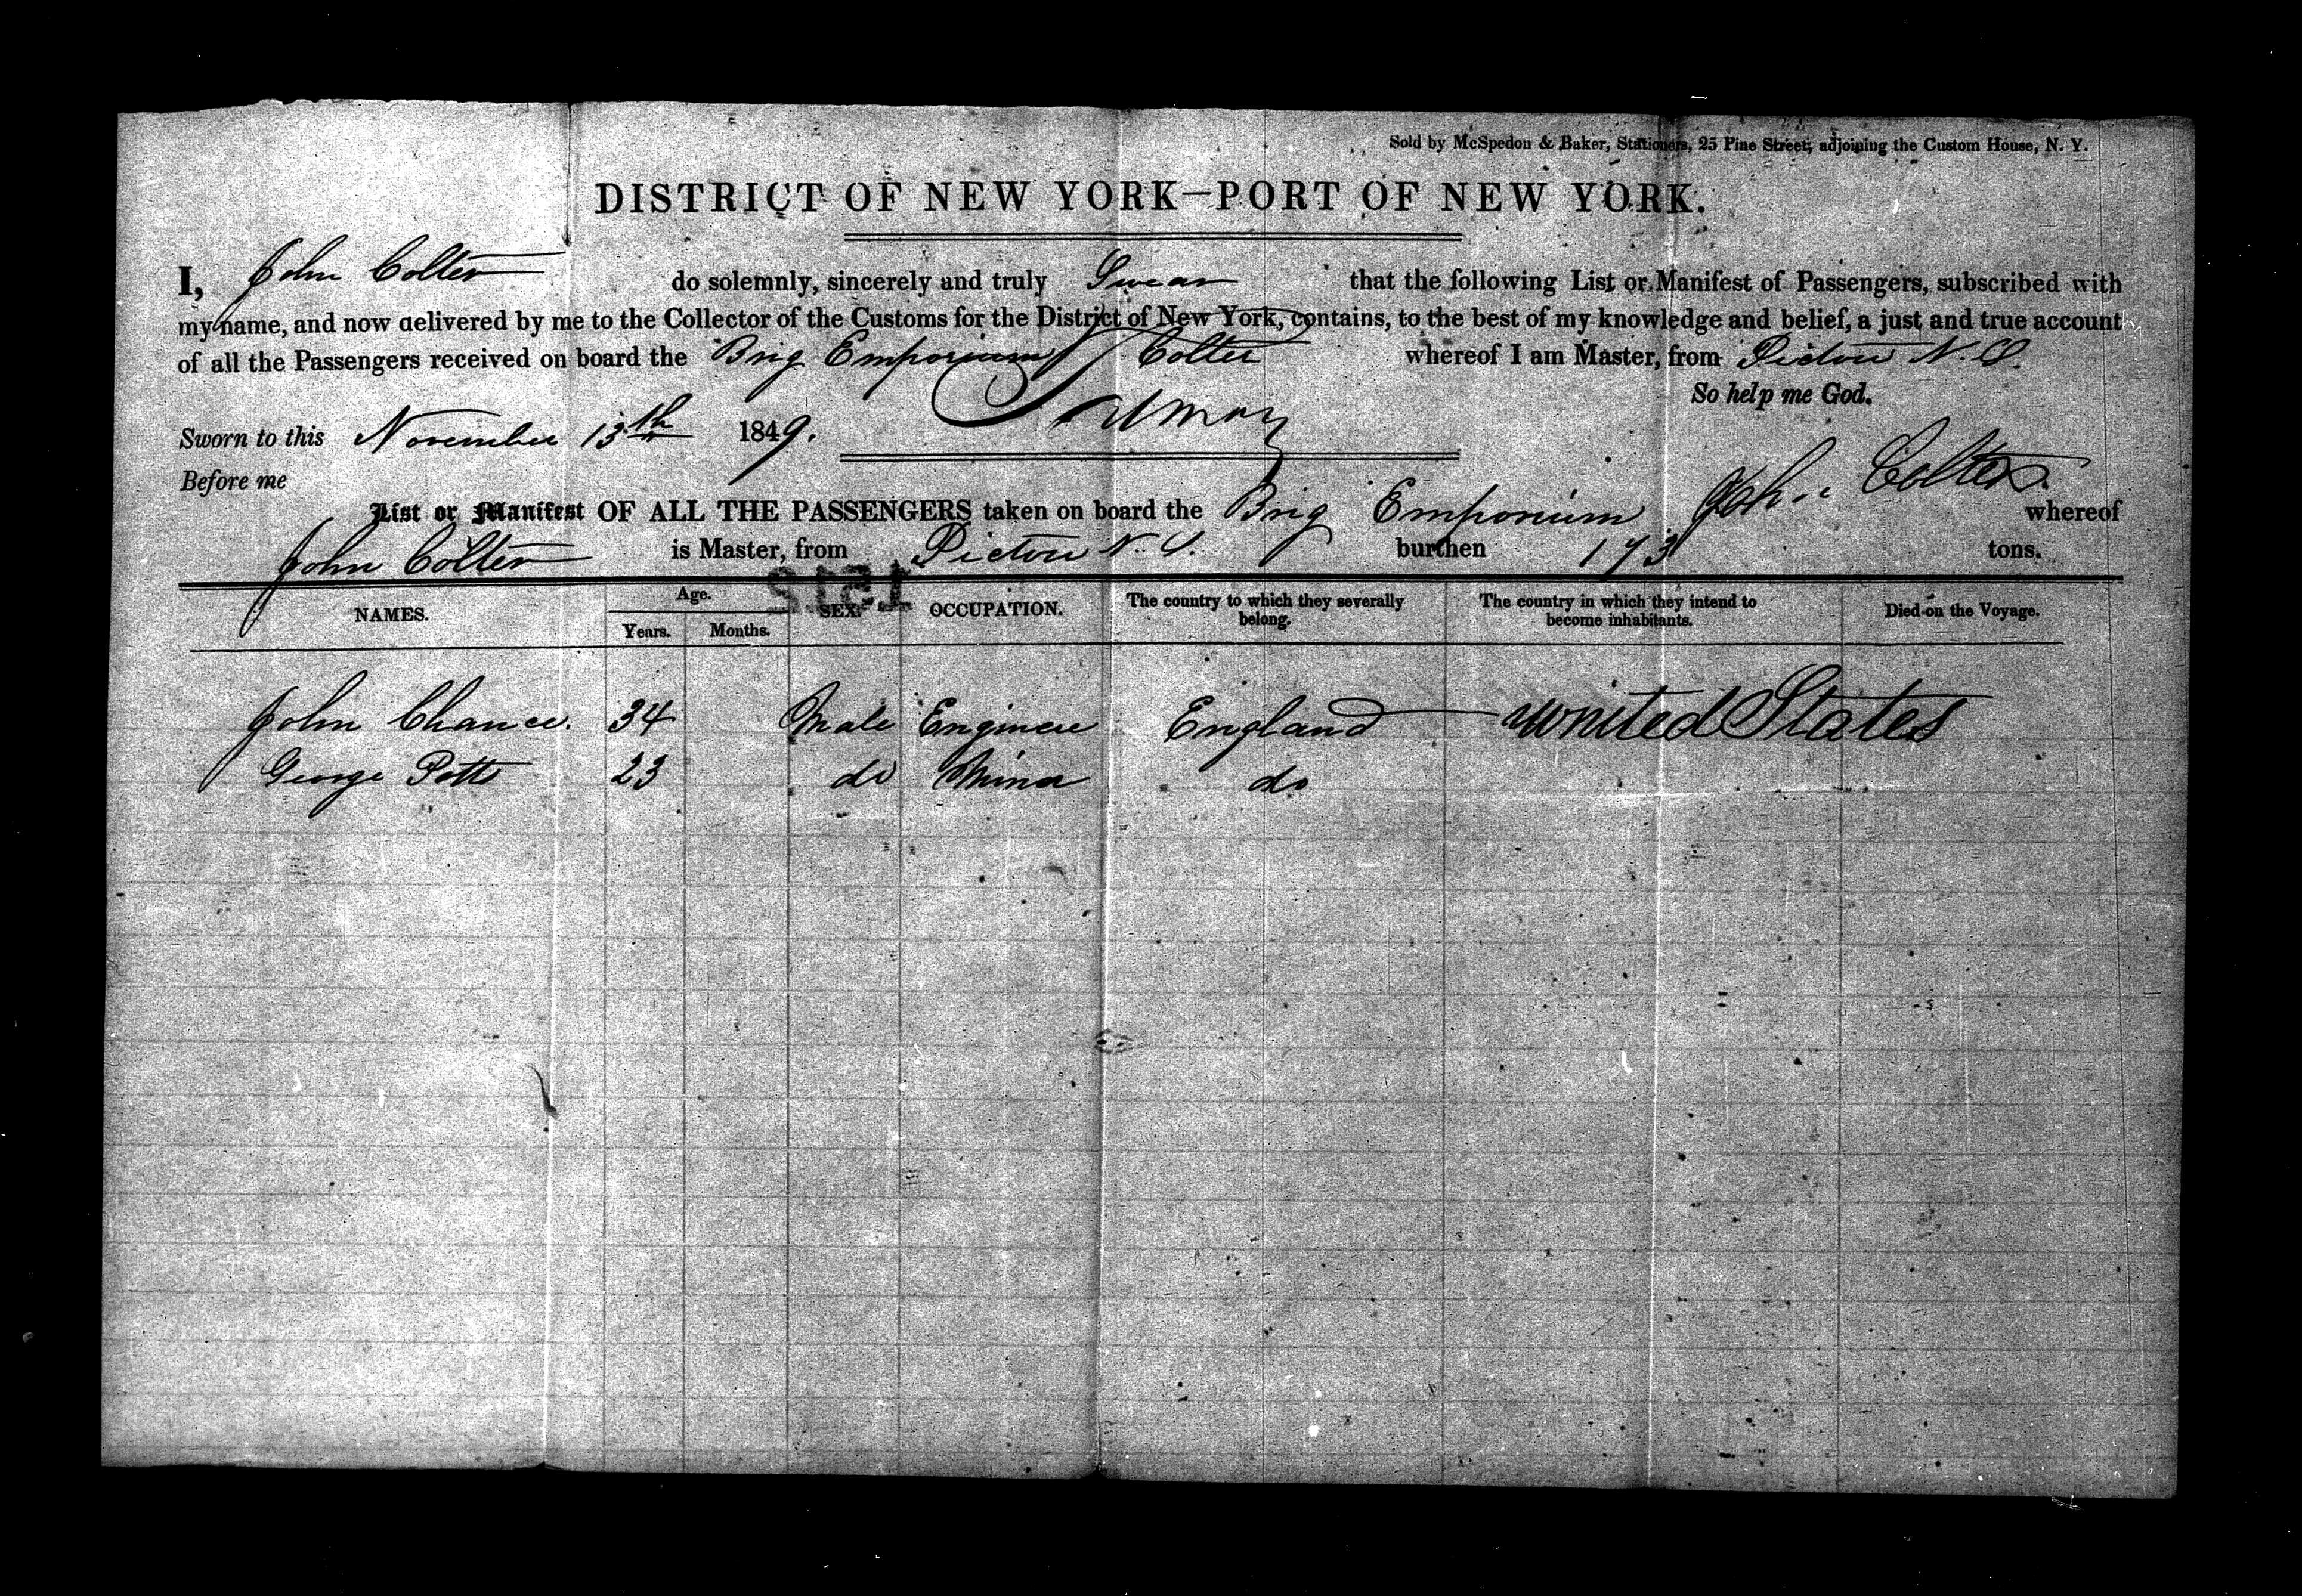 Sold by McSpedon & Baker, Stationers, 25 Pine Street, adjoining the Custom House, N. Y.
DISTRICT OF NEW YORK—PORT OF NEW YORK.
I, John Colter do solemnly, sincerely and truly Swear that the following List or Manifest of Passengers, subscribed with
my name, and now delivered by me to the Collector of the Customs for the District of New York, contains, to the best of my knowledge and belief, a just and true account
of all the Passengers received on board the Brig Emporium Colter whereof I am Master, from Pictou N. S.
So help me God.
Sworn to this November 13th 1849.
Before me John Colter
List or Manifest OF ALL THE PASSENGERS taken on board the Brig Emporium whereof
John Colter is Master, from Pictou N. S. burthen 173 tons.
1512
NAMES. Age. Years. Months. SEX. OCCUPATION. The country to which they severally belong. The country in which they intend to become inhabitants. Died on the Voyage.
John Chance. 34 Male Engineer England United States
George Potts 23 do Miner do